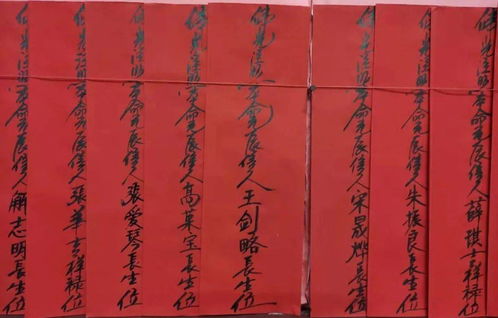 佛光注照本命元辰信人薛琪吉祥禄位
佛光注照本命元辰信人朱振良長生位
佛光注照本命元辰信人宋晟烨長生位
佛光注照本命元辰信人王剑略長生位
佛光注照本命元辰信人高宝長生位
佛光注照本命元辰信人張愛琴長生位
佛光注照本命元辰信人張華吉祥禄位
佛光注照本命元辰信人志明長生位